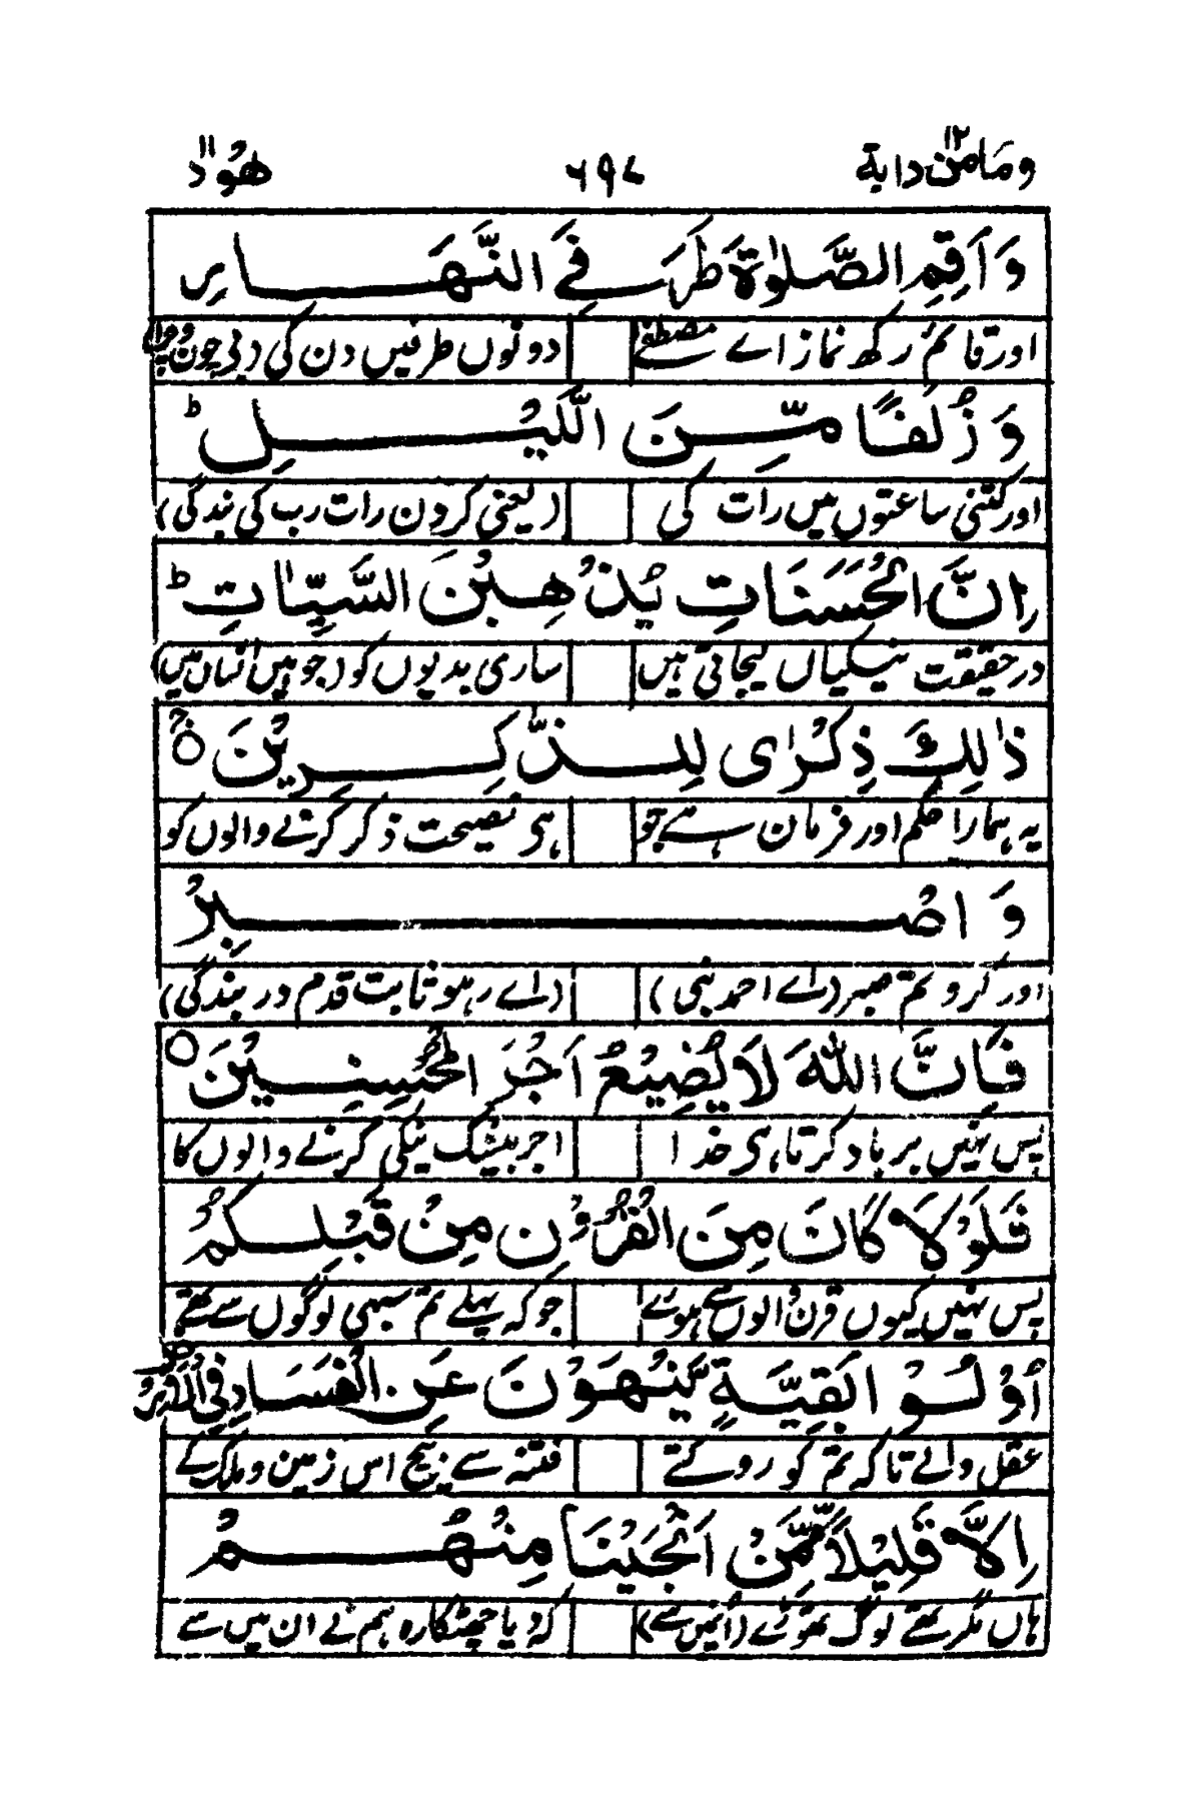 وما من دابة ۱۲ ۶۹۸ هُود ۱۱
وَاَقِمِ الصَّلٰوةَ طَرَفَیِ النَّهَارِ
اور قائم رکھ نماز اے مصطفےٰ دونوں طرفیں دن کی
وَ زُلَفًا مِّنَ الَّيْلِ ؕ
اور کتنی ساعتوں میں رات کی (یعنی کر دن رات رب کی بندگی)
اِنَّ الْحَسَنَاتِ يُذْهِبْنَ السَّيِّاٰتِ ؕ
درحقیقت نیکیاں لیجاتی ہیں ساری بدیوں کو (جو ہیں انسان میں)
ذٰلِكَ ذِكْرٰى لِلذّٰكِرِيْنَ ۝
یہ ہمارا حکم اور فرمان ہے جو ہی نصیحت ذکر کرنے والوں کو
وَ اصْبِرْ
اور کرو تم صبر (اے احمد نبی) (اے رہو ثابت قدم در بندگی)
فَاِنَّ اللّٰهَ لَا يُضِيْعُ اَجْرَ الْمُحْسِنِيْنَ ۝
پس نہیں برباد کرتا ہی خدا اجر بیشک نیکی کرنے والوں کا
فَلَوْلَا كَانَ مِنَ الْقُرُوْنِ مِنْ قَبْلِكُمْ
پس نہیں کیوں قرن والوں سے ہوئے جو کہ پہلے تم سبھی لوگوں سے تھے
اُولُوْا بَقِيَّةٍ يَّنْهَوْنَ عَنِ الْفَسَادِ فِي الْاَرْضِ
عقل والے تاکہ تم کو روکتے فتنہ سے بیچ اس زمین و ملک کے
اِلَّا قَلِيْلًا مِّمَّنْ اَنْجَيْنَا مِنْهُمْ
ہاں مگر تھے لوگ تھوڑے (انہیں سے) کہ دیا چھٹکارہ ہم نے ان میں سے